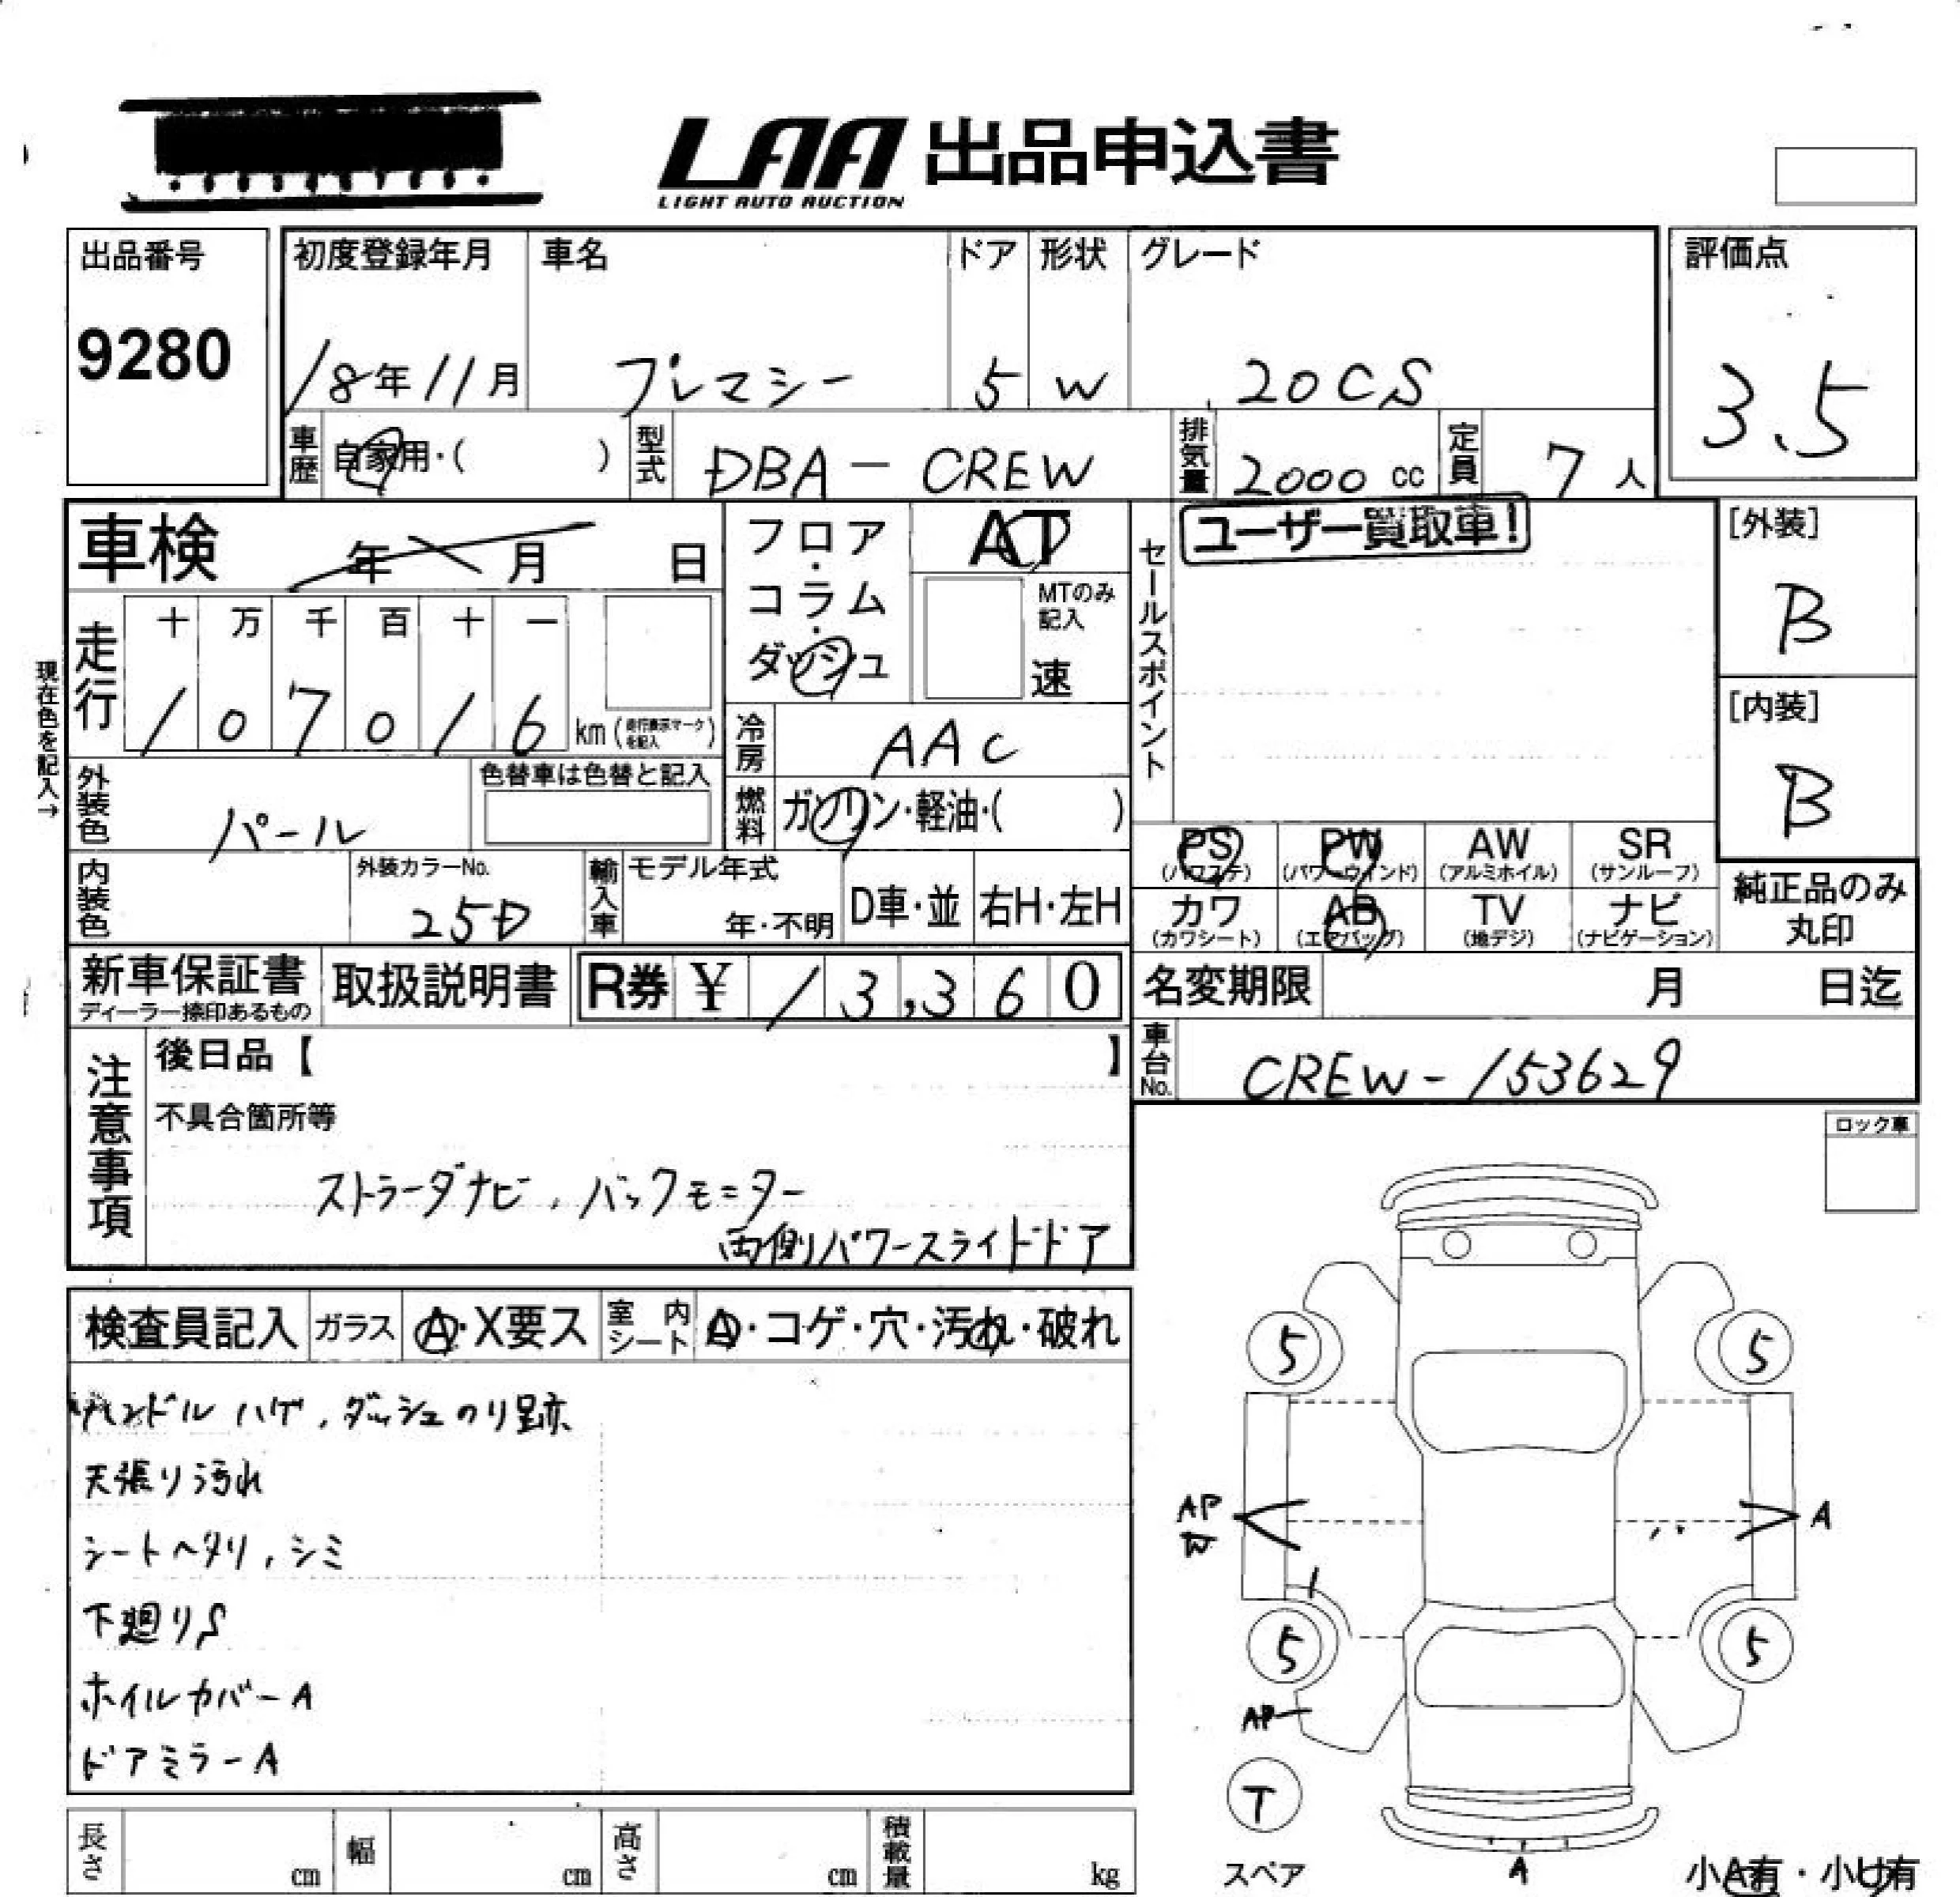 LAA 出品申込書
LIGHT AUTO AUCTION
出品番号
9280
初度登録年月
18年11月
車名
プレマシー
ドア
5
形状
W
グレード
20CS
評価点
3.5
車歴
自家用・( )
型式
DBA-CREW
排気量
2000 cc
定員
7人
車検
年 月 日
フロア・コラム・ダッシュ
AT
MTのみ記入
速
セールスポイント
ユーザー買取車!
[外装]
B
[内装]
B
現在色を記入→
走行
十 万 千 百 十 一
1 0 7 0 1 6 km (走行表示マークを記入)
冷房
AAC
外装色
パール
色替車は色替と記入
燃料
ガソリン・軽油・( )
PS (パワステ)
PW (パワーウインド)
AW (アルミホイル)
SR (サンルーフ)
カワ (カワシート)
AB (エアバッグ)
TV (地デジ)
ナビ (ナビゲーション)
純正品のみ丸印
内装色
外装カラーNo.
25D
輸入車
モデル年式
年・不明
D車・並
右H・左H
新車保証書
ディーラー捺印あるもの
取扱説明書
R券 ¥ 13,360
名変期限
月 日迄
車台No.
CREW-153629
注意事項
後日品【 】
不具合箇所等
ストラーダナビ、バックモニター
両側パワースライドドア
ロック車
検査員記入
ガラス
A・X要ス
室内シート
A・コゲ・穴・汚れ・破れ
ハンドルハゲ、ダッシュのり跡
天張り汚れ
シートヘタリ、シミ
下廻りS
ホイルカバーA
ドアミラーA
5 5
AP
W
A
5 5
AP
T
スペア
A
小A有・小U有
長さ cm
幅 cm
高さ cm
積載量 kg